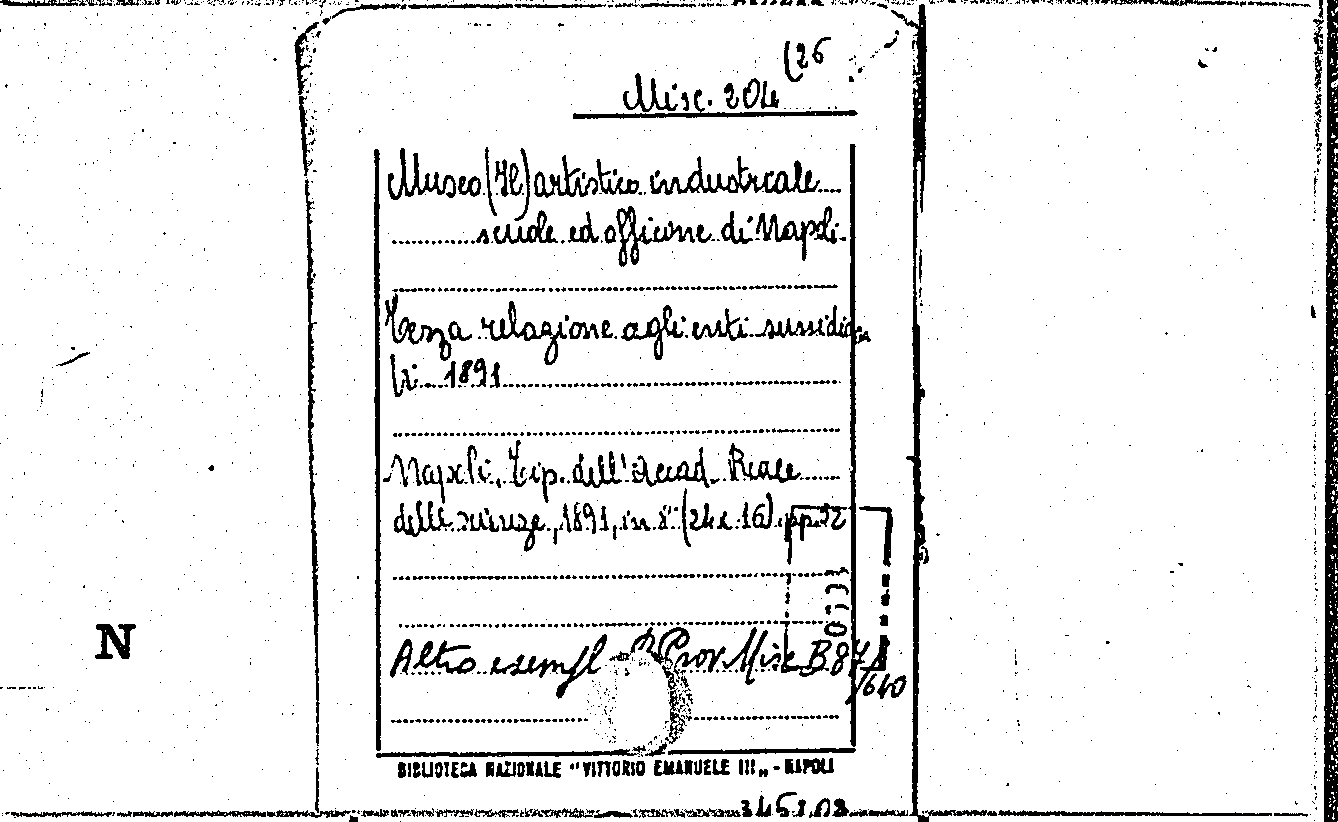 (26
Misc. 204
Museo (Il) artistico industriale
scuole ed officine di Napoli.
Terza relazione agli enti sussidia
tri. 1891
Napoli, Tip. dell'Accad. Reale
delle scienze, 1891, in 8° (24 x 16) pp. 32
Altro esempl. Prov. Misc B 87/
/640
N
BIBLIOTECA NAZIONALE "VITTORIO EMANUELE III„ - NAPOLI